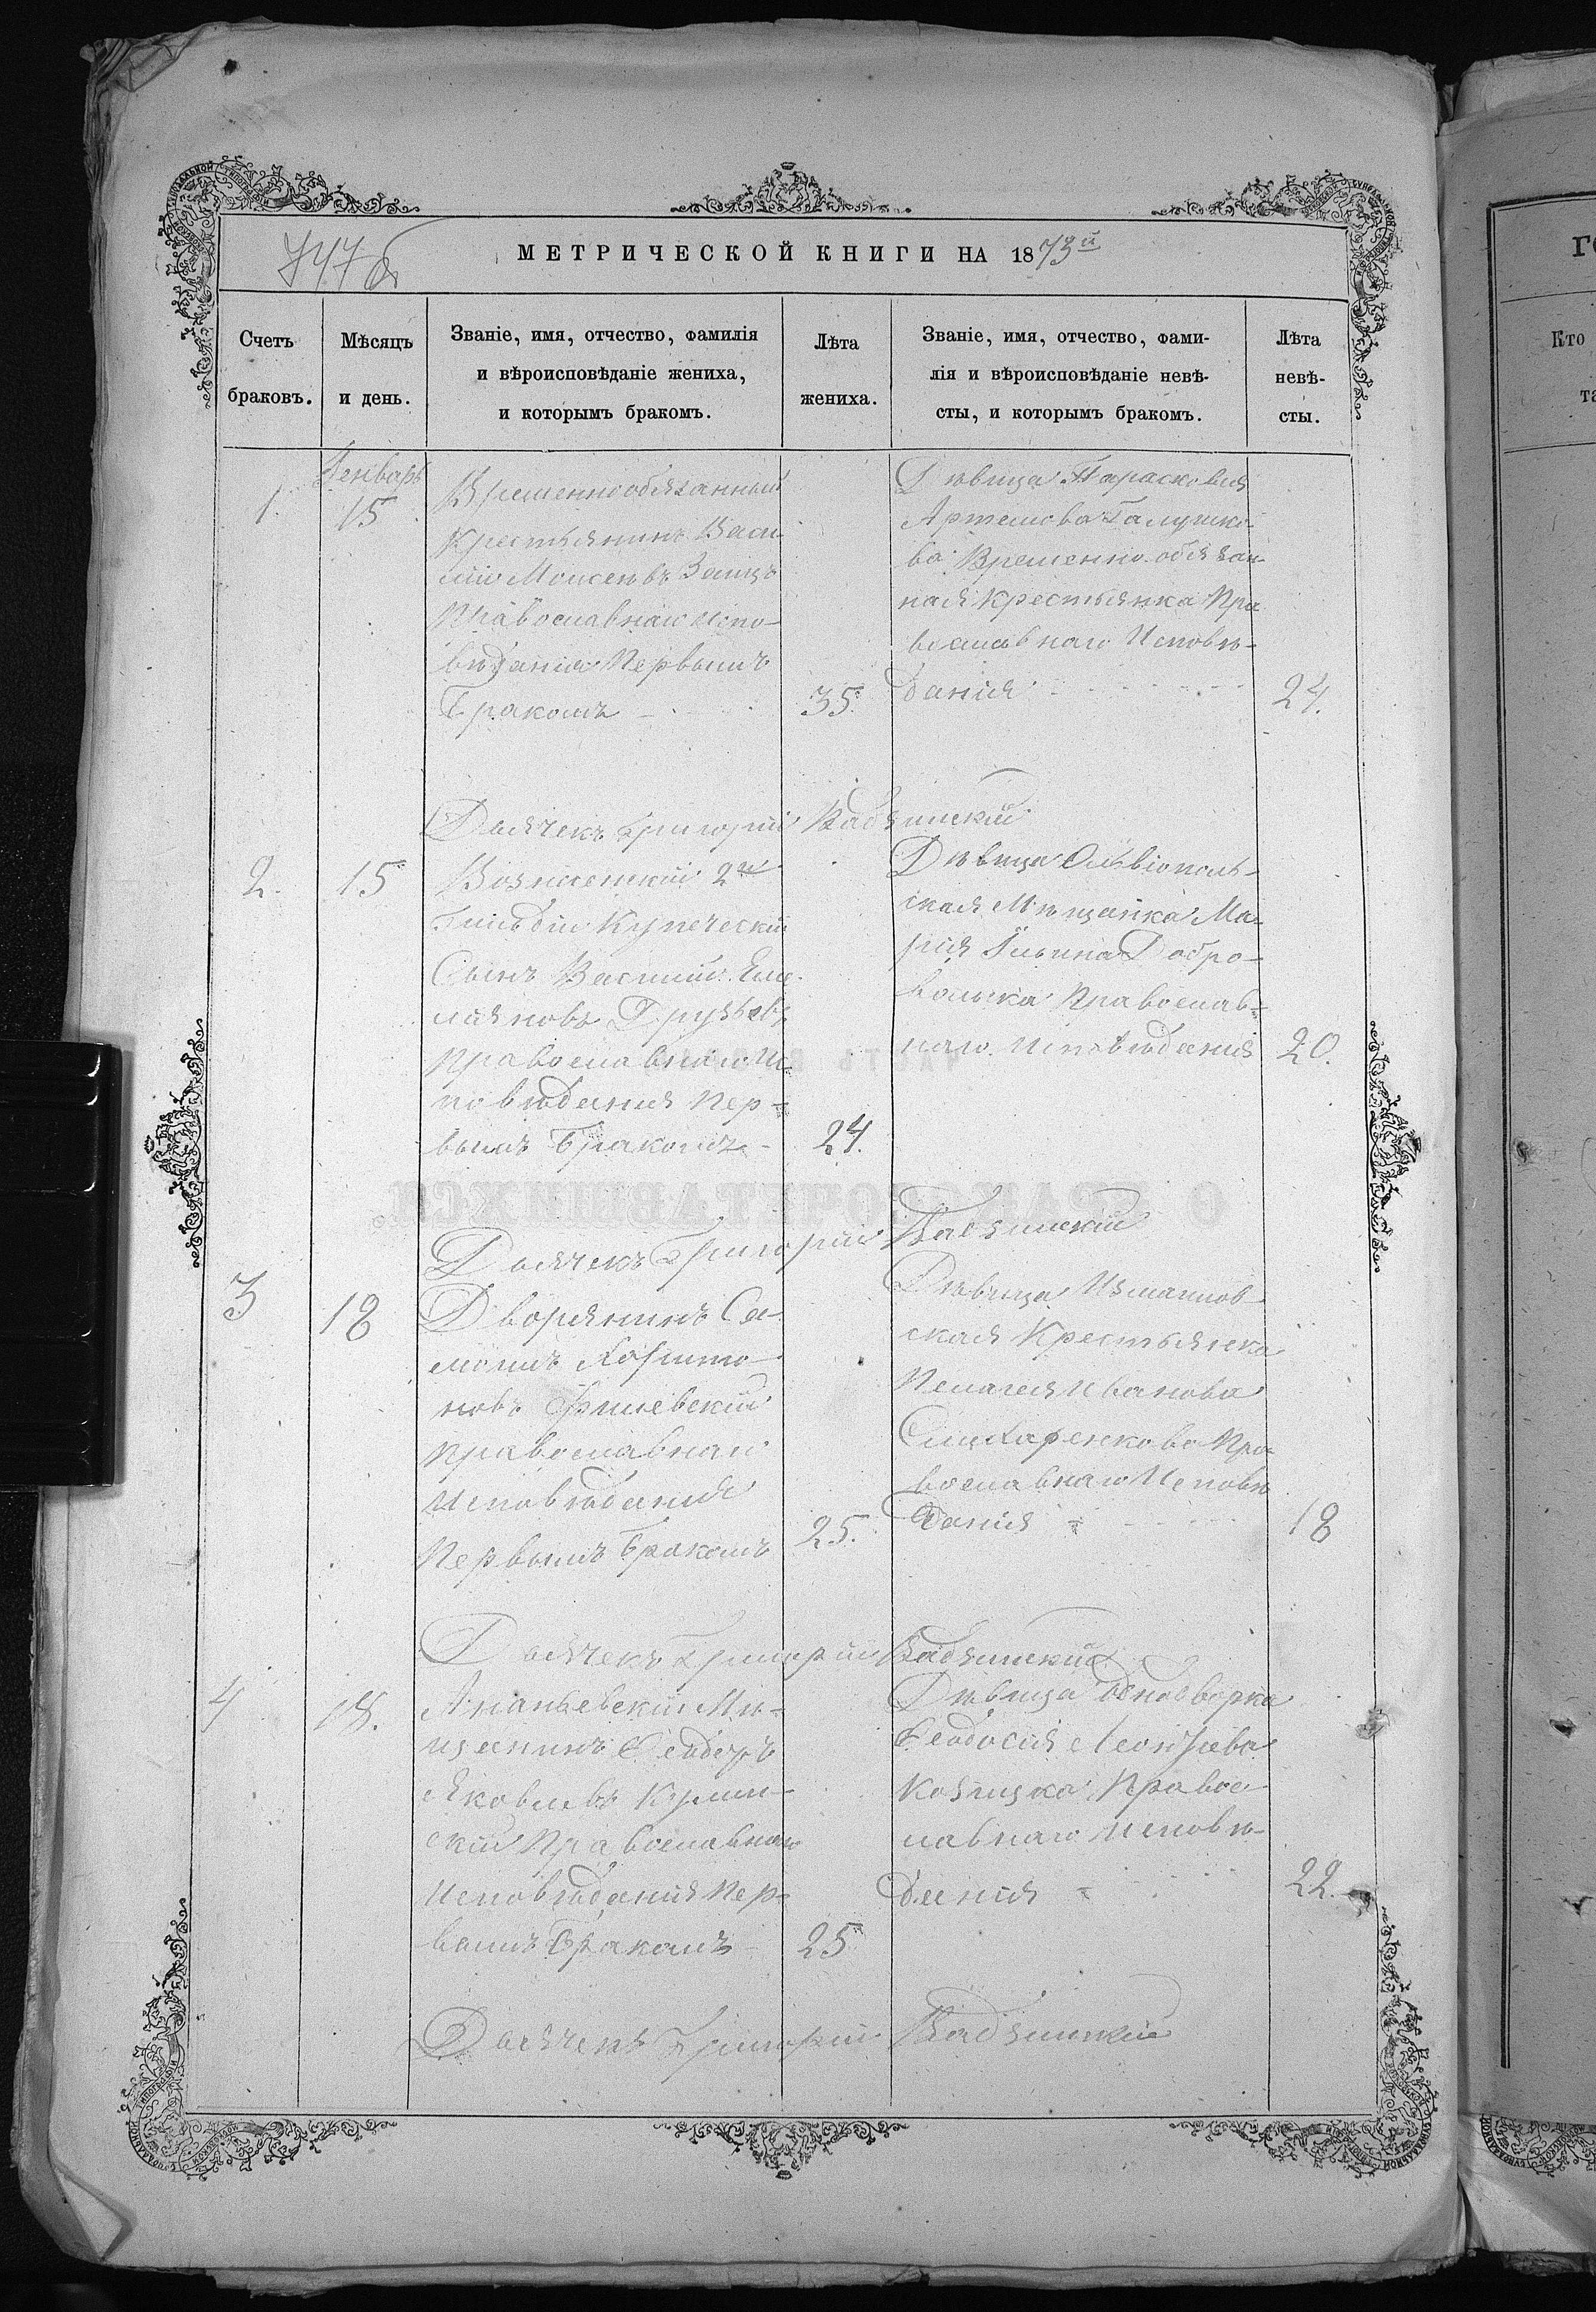 747б
МЕТРИЧЕСКОЙ КНИГИ НА 1873й
Счетъ
браковъ.
Мѣсяцъ
и день.
Званіе, имя, отчество, фамилія
и вѣроисповѣданіе жениха,
и которымъ бракомъ.
Лѣта
жениха.
Званіе, имя, отчество, фами-
лія и вѣроисповѣданіе невѣ-
сты, и которымъ бракомъ.
Лѣта
невѣ-
сты.
1.
Генварь
15
Временнообязанный
Крестьянинъ Васи-
лій Моисеевъ Заицъ
Православнаго Испо-
вѣданія Первымъ
Бракомъ
35.
Дѣвица Парасковія
Артемова Галушко-
ва Временно обязан-
ная Крестьянка Пра
вославнаго Исповѣ-
данія
24.
Дьячекъ Григорій
2.
15
Вознесенскій 2й
Гильдіи Купеческій
Сынъ Василій Еме-
льяновъ Друзьевъ
Православнаго Ис-
повѣданія Пер-
вымъ Бракомъ
24.
Дѣвица Ольвіополь-
ская Мѣщанка Ма-
рія Ильина Добро-
вольска Православ-
наго Исповѣданія
20.
Дьячекъ Григорій
3
18
Дворянинъ Са-
моилъ Харито-
новъ
Православнаго
Исповѣданія
Первымъ Бракомъ
25.
Дѣвица
ская Крестьянка
Пелагея Иванова
Пра
вославнаго Исповѣ
данія
18
Дьячекъ Григорій
4
18.
Ананьевскій Мѣ-
щанинъ Ѳеодоръ
Яковлевъ
скій Православнаго
Исповѣданія Пер-
вымъ Бракомъ
25
Дѣвица Однодворка
Ѳеодосія Леонтіева
Козицка Правос
лавнаго Исповѣ-
данія
22.
Дьячекъ Григорій